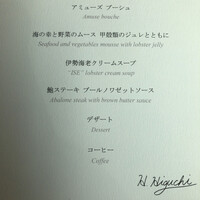 アミューズ ブーシュ
Amuse bouche
海の幸と野菜のムース 甲殻類のジュレとともに
Seafood and vegetables mousse with lobster jelly
伊勢海老クリームスープ
"ISE" lobster cream soup
鮑ステーキ ブールノワゼットソース
Abalone steak with brown butter sauce
デザート
Dessert
コーヒー
Coffee
H Higuchi